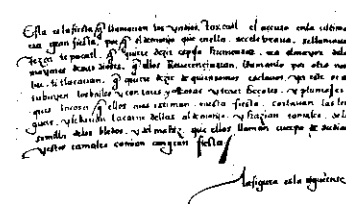 Esta es la fiesta q̃ llamaron los yndios toxcatl.
una gran fiesta, por q̃ el demonio que en ella. se celebrava. se llamava
tezca tepocatl. q̃ quiere dezir espejo humeante. era el mayor de los
mayores de sus dioses. q̃ ellos Reverenciavan. llamanlo por otro nom
bre. titlacauan. q̃ quiere dezir de quien somos esclavos. ya este se a
tribuyen los bailes y cantares y Rosas y traer beçotes. y plumajes
que es la cosa q̃ ellos mas estiman. en esta fiesta. cortavan las len
guas. y davan la carne dellas al demonio. y hazian tamales. de la
semilla de los bledos. y del maiz. que ellos llaman cuerpo de su dios
y estos tamales comian con gran fiesta
la figura es la siguiente